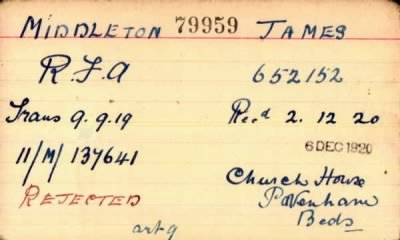 MIDDLETON 79959 JAMES
R.F.A 652152
Trans 9.9.19 Rec'd 2.12 20
6 DEC 1920
11/M/137641
Church House
REJECTED Pavenham
Beds
art 9